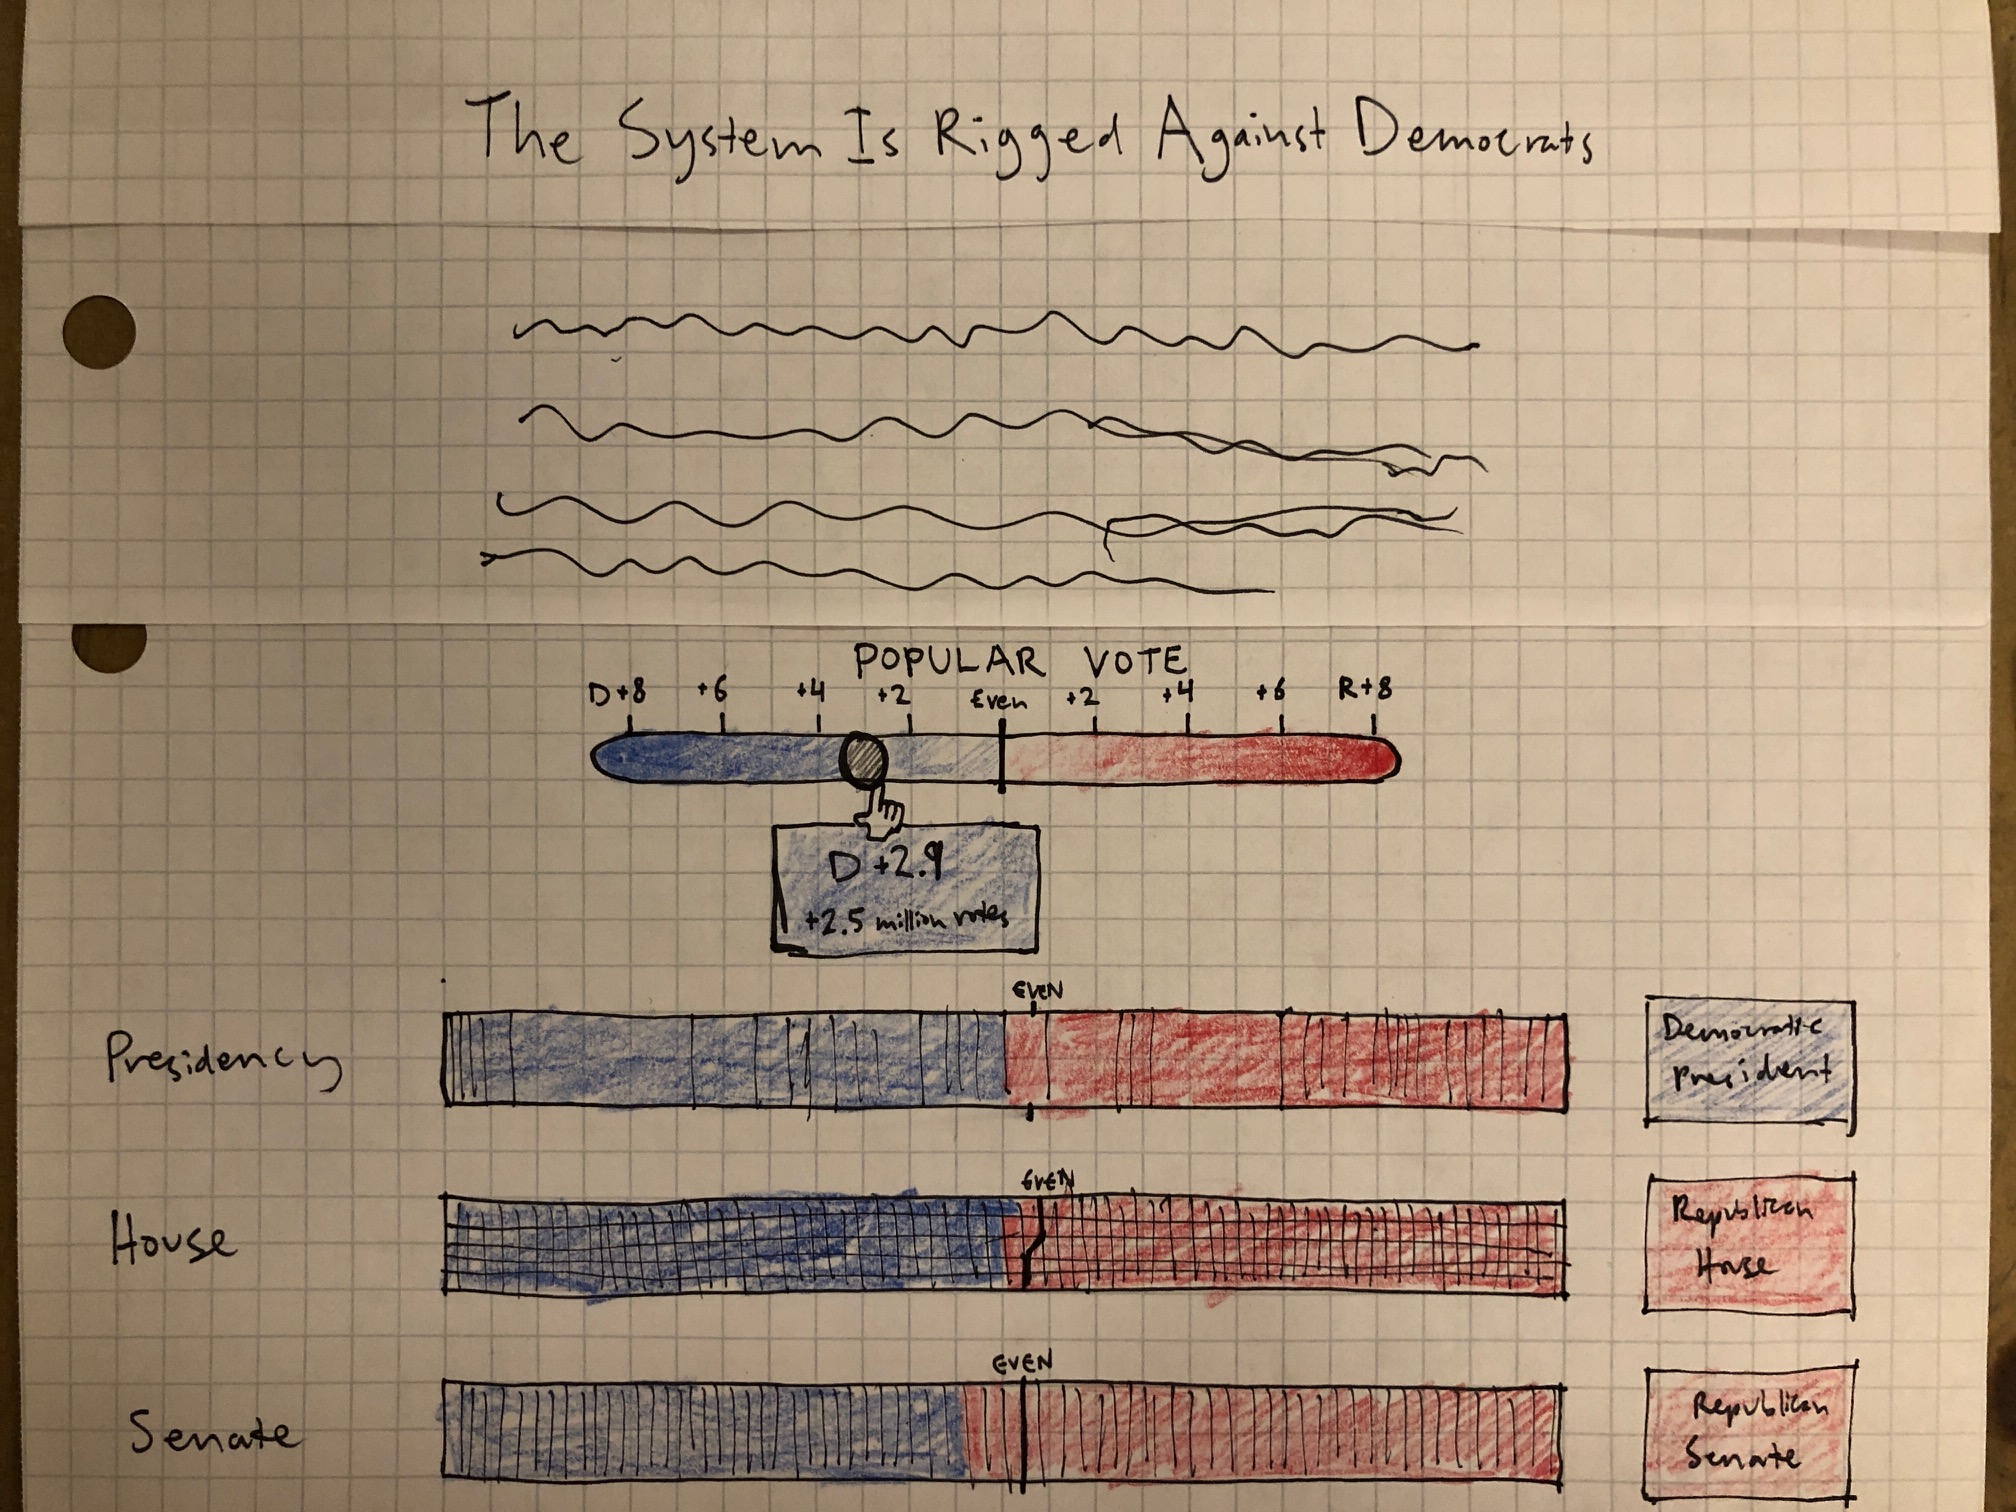 The System Is Rigged Against Democrats
POPULAR VOTE
D+8 +6 +4 +2 Even +2 +4 +6 R+8
D +2.9
+2.5 million votes
EVEN
Presidency
Democratic
President
EVEN
House
Republican
House
EVEN
Senate
Republican
Senate